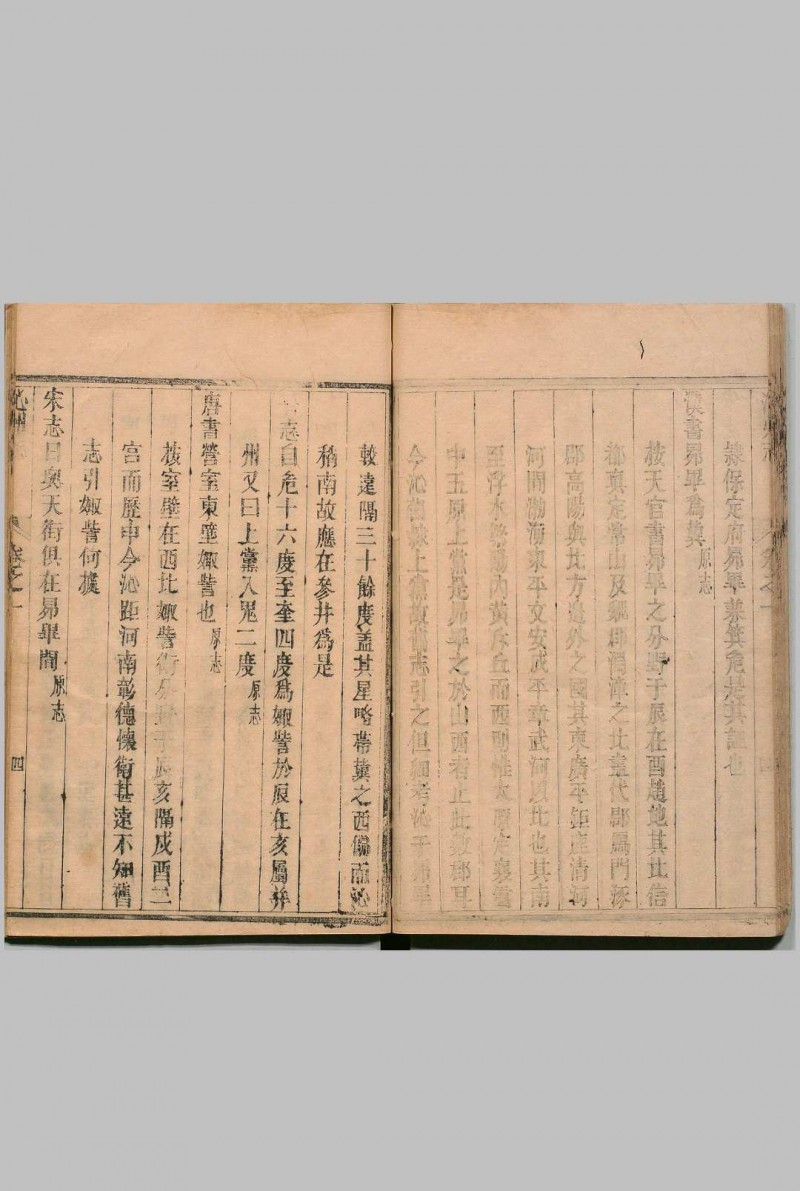 隸保定府昴畢兼箕危是其証也
漢書昴畢爲冀原志
按天官書昴畢之分野于辰在酉趙地其北信
都真定常山及魏郡渭漳之北盡代郡鴈門涿
郡高陽與北方邊外之國其東廣平鉅鹿清河
河間渤海東平文安成平章武河以北也其南
至浮水繁陽內黃斥丘而西則惟太原定襄雲
中五原上黨是昴畢之於山西者止此數郡耳
今沁舊隸上黨故舊志引之但細考沁于昴畢
較遠隔三十餘度盖其星略帶冀之西偏而沁
稍南故應在參井爲是
志自危十六度至奎四度爲娵訾於辰在亥屬并
州又曰上黨入鬼二度原志
唐書營室東壁娵訾也原志
按室壁在西北娵訾衛分野于辰亥隔戍酉二
宮而歷申今沁距河南彰德懷衛甚遠不知舊
志引娵訾何據
宋志日與天街俱在昴畢間原志
沁州
卷之一
四